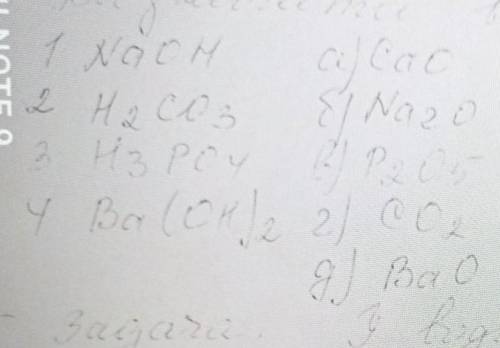 1 NaOH а) CaO
2 H2CO3 б) Na2O
3 H3PO4 в) P2O5
4 Ba(OH)2 г) CO2
д) BaO
Задачи.
NOTE 9